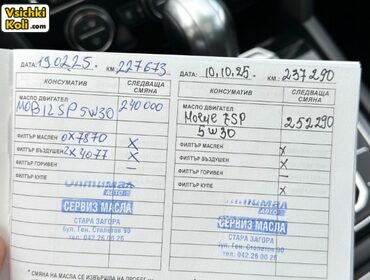 Vsichki
Koli.com
ДАТА: 19.02.25. КМ: 227673
КОНСУМАТИВ СЛЕДВАЩА СМЯНА
МАСЛО ДВИГАТЕЛ
MOBIL SP 5W30 240000
ФИЛТЪР МАСЛЕН OX787D X
ФИЛТЪР ВЪЗДУШЕН 2X4077 X
ФИЛТЪР ГОРИВЕН —
ФИЛТЪР КУПЕ —
АУТО
СЕРВИЗ МАСЛА
СТАРА ЗАГОРА
бул. Ген. Столетов 90
тел: 042.26 00 26
• СМЯНА НА МАСЛА СЕ ИЗВЪРШВА НА ПРОБЕГ
ДАТА: 10.10.25. КМ: 237290
КОНСУМАТИВ СЛЕДВАЩА СМЯНА
МАСЛО ДВИГАТЕЛ
SP 252290
5W30
ФИЛТЪР МАСЛЕН X
ФИЛТЪР ВЪЗДУШЕН X
ФИЛТЪР ГОРИВЕН —
ФИЛТЪР КУПЕ X
АУТО
СЕРВИЗ МАСЛА
СТАРА ЗАГОРА
бул. Ген. Столетов 90
тел: 042.26 00 26